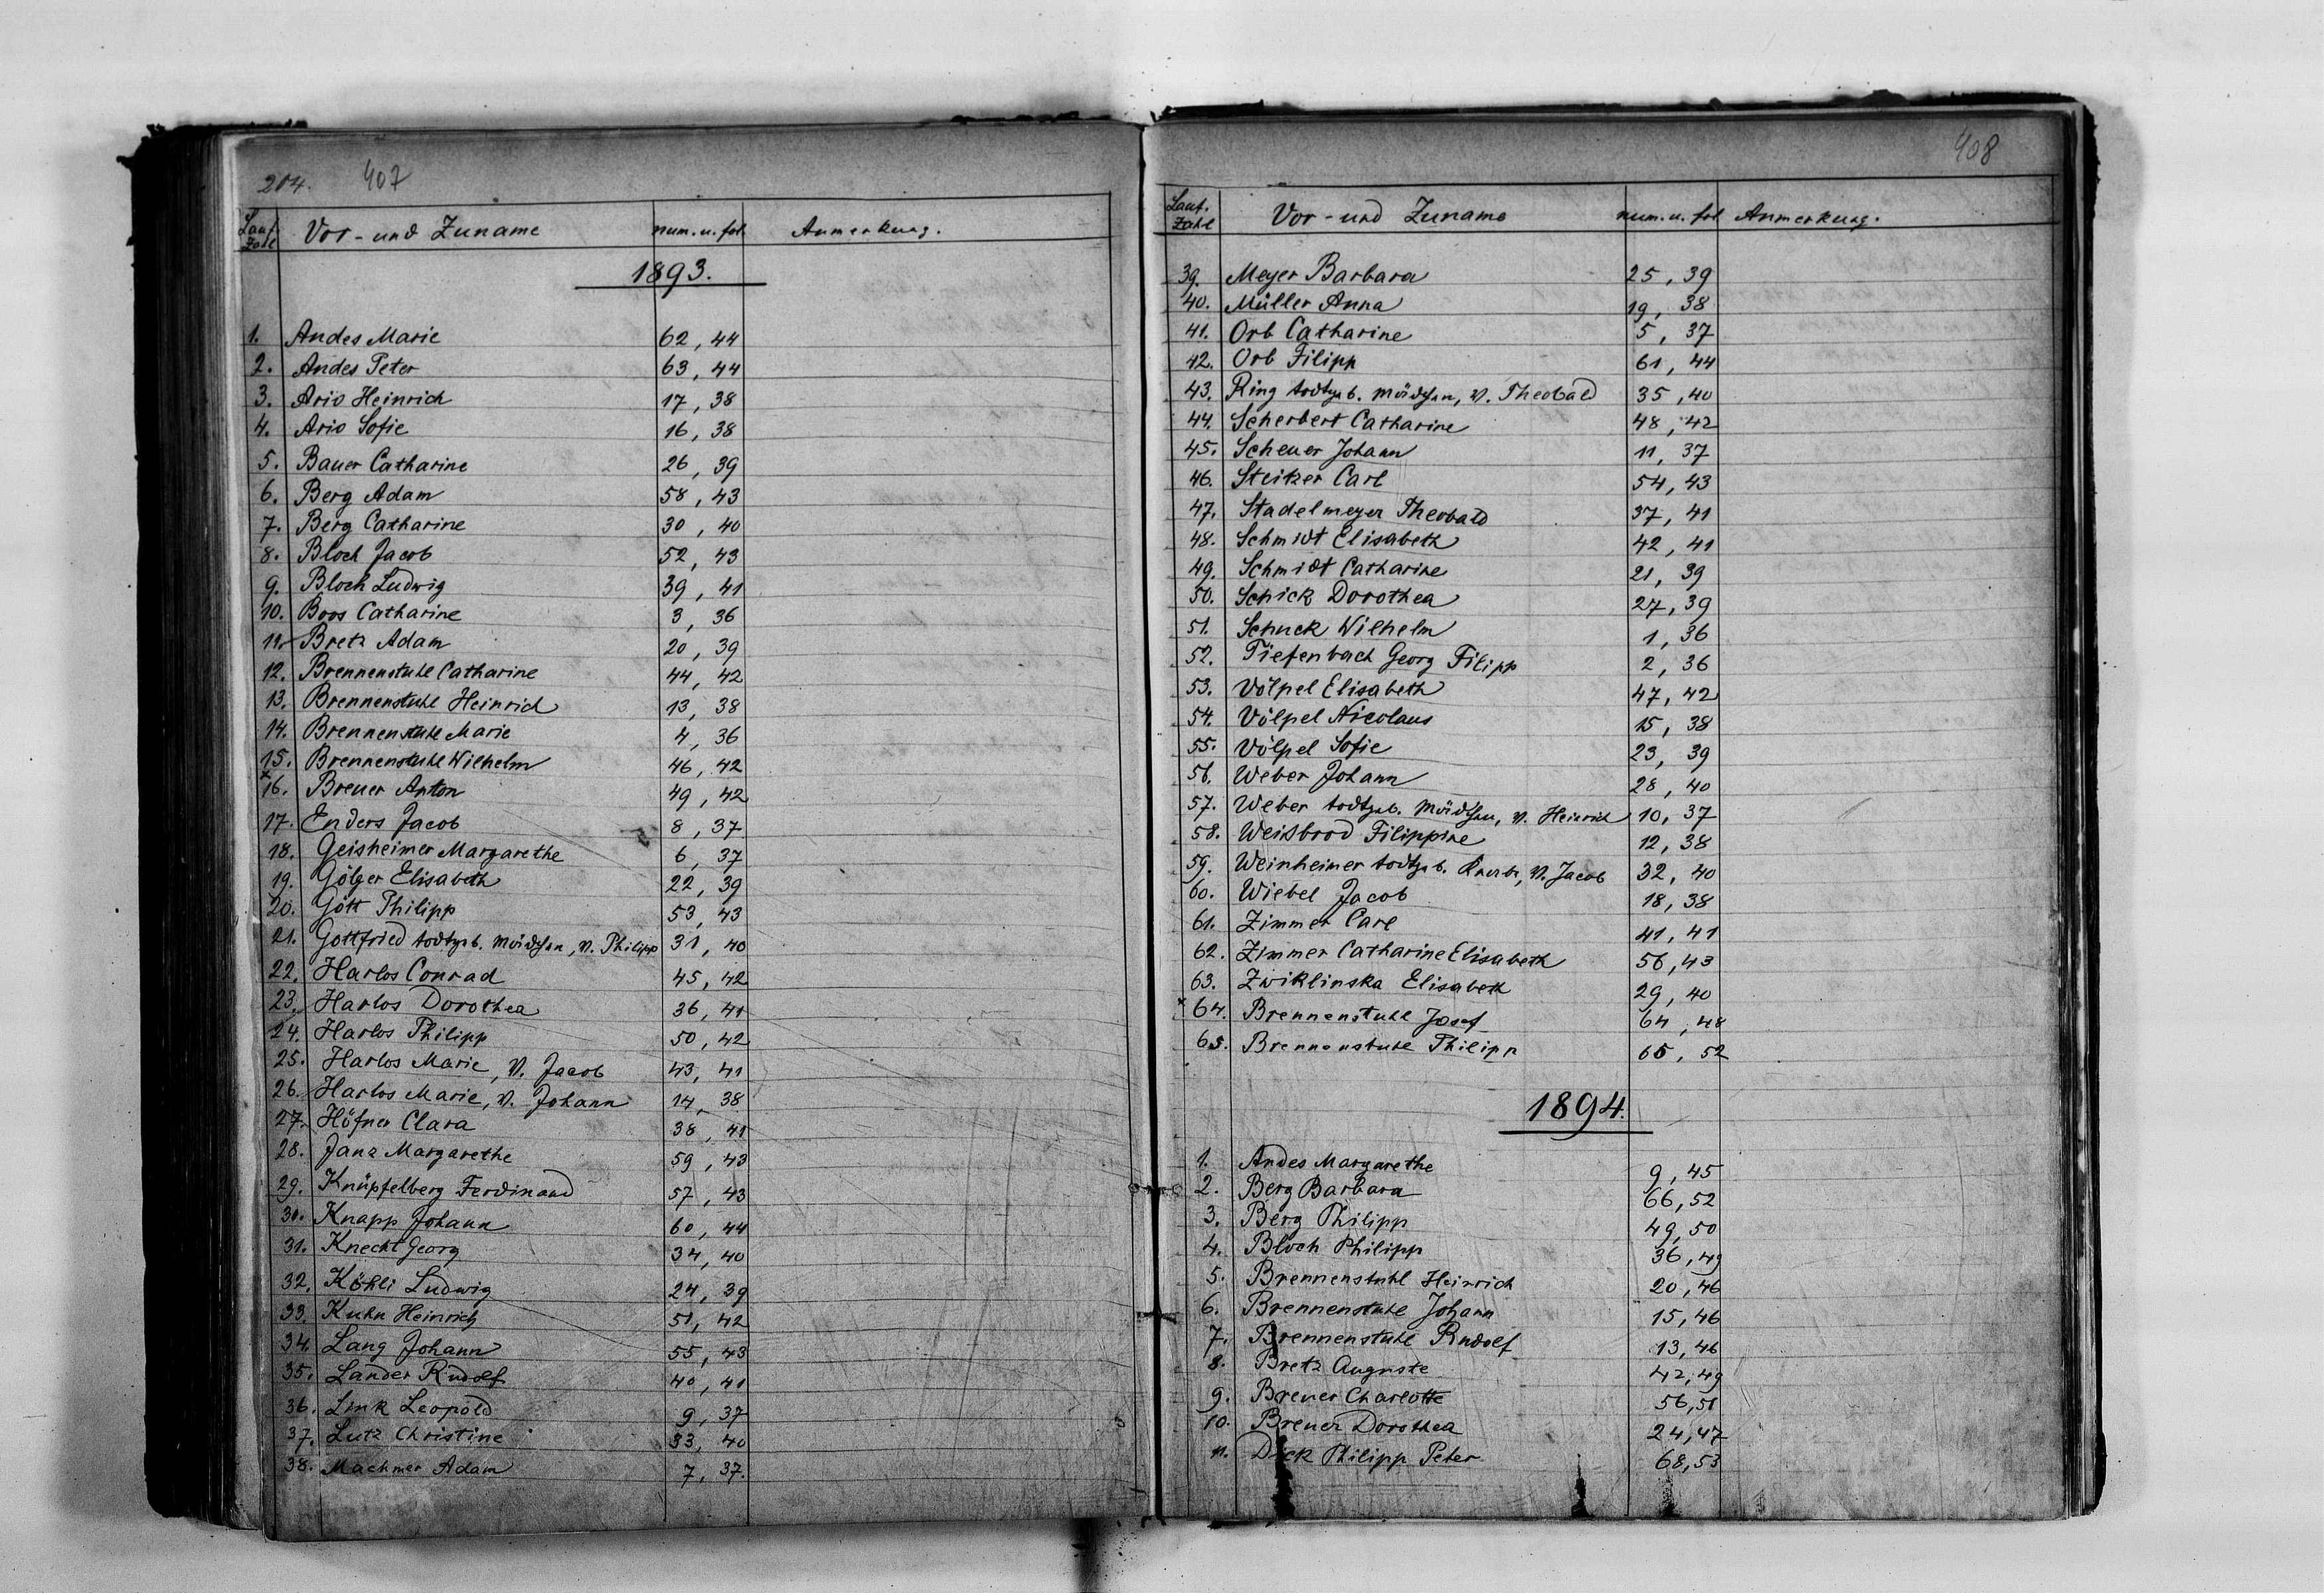 204. 407
Lauf. Zahl Vor- und Zuname num. u. fol. Anmerkung.
1893.
1. Andes Marie 62, 44
2. Andes Peter 63, 44
3. Ario Heinrich 17, 38
4. Ario Sofie 16, 38
5. Bauer Catharine 26, 39
6. Berg Adam 58, 43
7. Berg Catharine 30, 40
8. Bloch Jacob 52, 43
9. Bloch Ludwig 39, 41
10. Boos Catharine 3, 36
11. Bretz Adam 20, 39
12. Brennenstuhl Catharine 44, 42
13. Brennenstuhl Heinrich 13, 38
14. Brennenstuhl Marie 4, 36
15. Brennenstuhl Wilhelm 46, 42
×16. Breuer Anton 49, 42
17. Enders Jacob 8, 37
18. Geisheimer Margarethe 6, 37
19. Gölger Elisabeth 22, 39
20. Gött Philipp 53, 43
21. Gottfried todtgeb. Mädchen, V. Philipp 31, 40
22. Harlos Conrad 45, 42
23. Harlos Dorothea 36, 41
24. Harlos Philipp 50, 42
25. Harlos Marie, V. Jacob 43, 41
26. Harlos Marie, V. Johann 14, 38
27. Höfner Clara 38, 41
28. Janz Margarethe 59, 43
29. Knüpfelberg Ferdinand 57, 43
30. Knapp Johann 60, 44
31. Knecht Georg 34, 40
32. Köhli Ludwig 24, 39
33. Kuhn Heinrich 51, 42
34. Lang Johann 55, 43
35. Lander Rudolf 40, 41
36. Link Leopold 9, 37
37. Lutz Christine 33, 40
38. Machmer Adam 7, 37.
408
Lauf. Zahl Vor- und Zuname num. u. fol Anmerkung.
39. Meyer Barbara 25, 39
40. Müller Anna 19, 38
41. Orb Catharine 5, 37
42. Orb Filipp 61, 44
43. Ring todtgeb. Mädchen, V. Theobald 35, 40
44. Scherbert Catharine 48, 42
45. Scheuer Johann 11, 37
46. Steitzer Carl 54, 43
47. Stadelmeyer Theobald 37, 41
48. Schmidt Elisabeth 42, 41
49. Schmidt Catharine 21, 39
50. Schick Dorothea 27, 39
51. Schuck Wilhelm 1, 36
52. Tiefenbach Georg Filipp 2, 36
53. Völpel Elisabeth 47, 42
54. Völpel Nicolaus 15, 38
55. Völpel Sofie 23, 39
56. Weber Johann 28, 40
57. Weber todtgeb. Mädchen, V. Heinrich 10, 37
58. Weisbrod Filippine 12, 38
59. Weinheimer todtgeb. Knabe, V. Jacob 32, 40
60. Wiebel Jacob 18, 38
61. Zimmer Carl 41, 41
62. Zimmer Catharine Elisabeth 56, 43
63. Zwiklinska Elisabeth 29, 40
×64. Brennenstuhl Josef 64, 48
65. Brennenstuhl Philipp 65, 52
1894.
1. Andes Margarethe 9, 45
2. Berg Barbara 66, 52
3. Berg Philipp 49, 50
4. Bloch Philipp 36, 49
5. Brennenstuhl Heinrich 20, 46
6. Brennenstuhl Johann 15, 46
7. Brennenstuhl Rudolf 13, 46
8. Bretz Auguste 42, 49
9. Breuer Charlotte 56, 51
10. Breuer Dorothea 24, 47
11. Dick Philipp Peter 68, 53